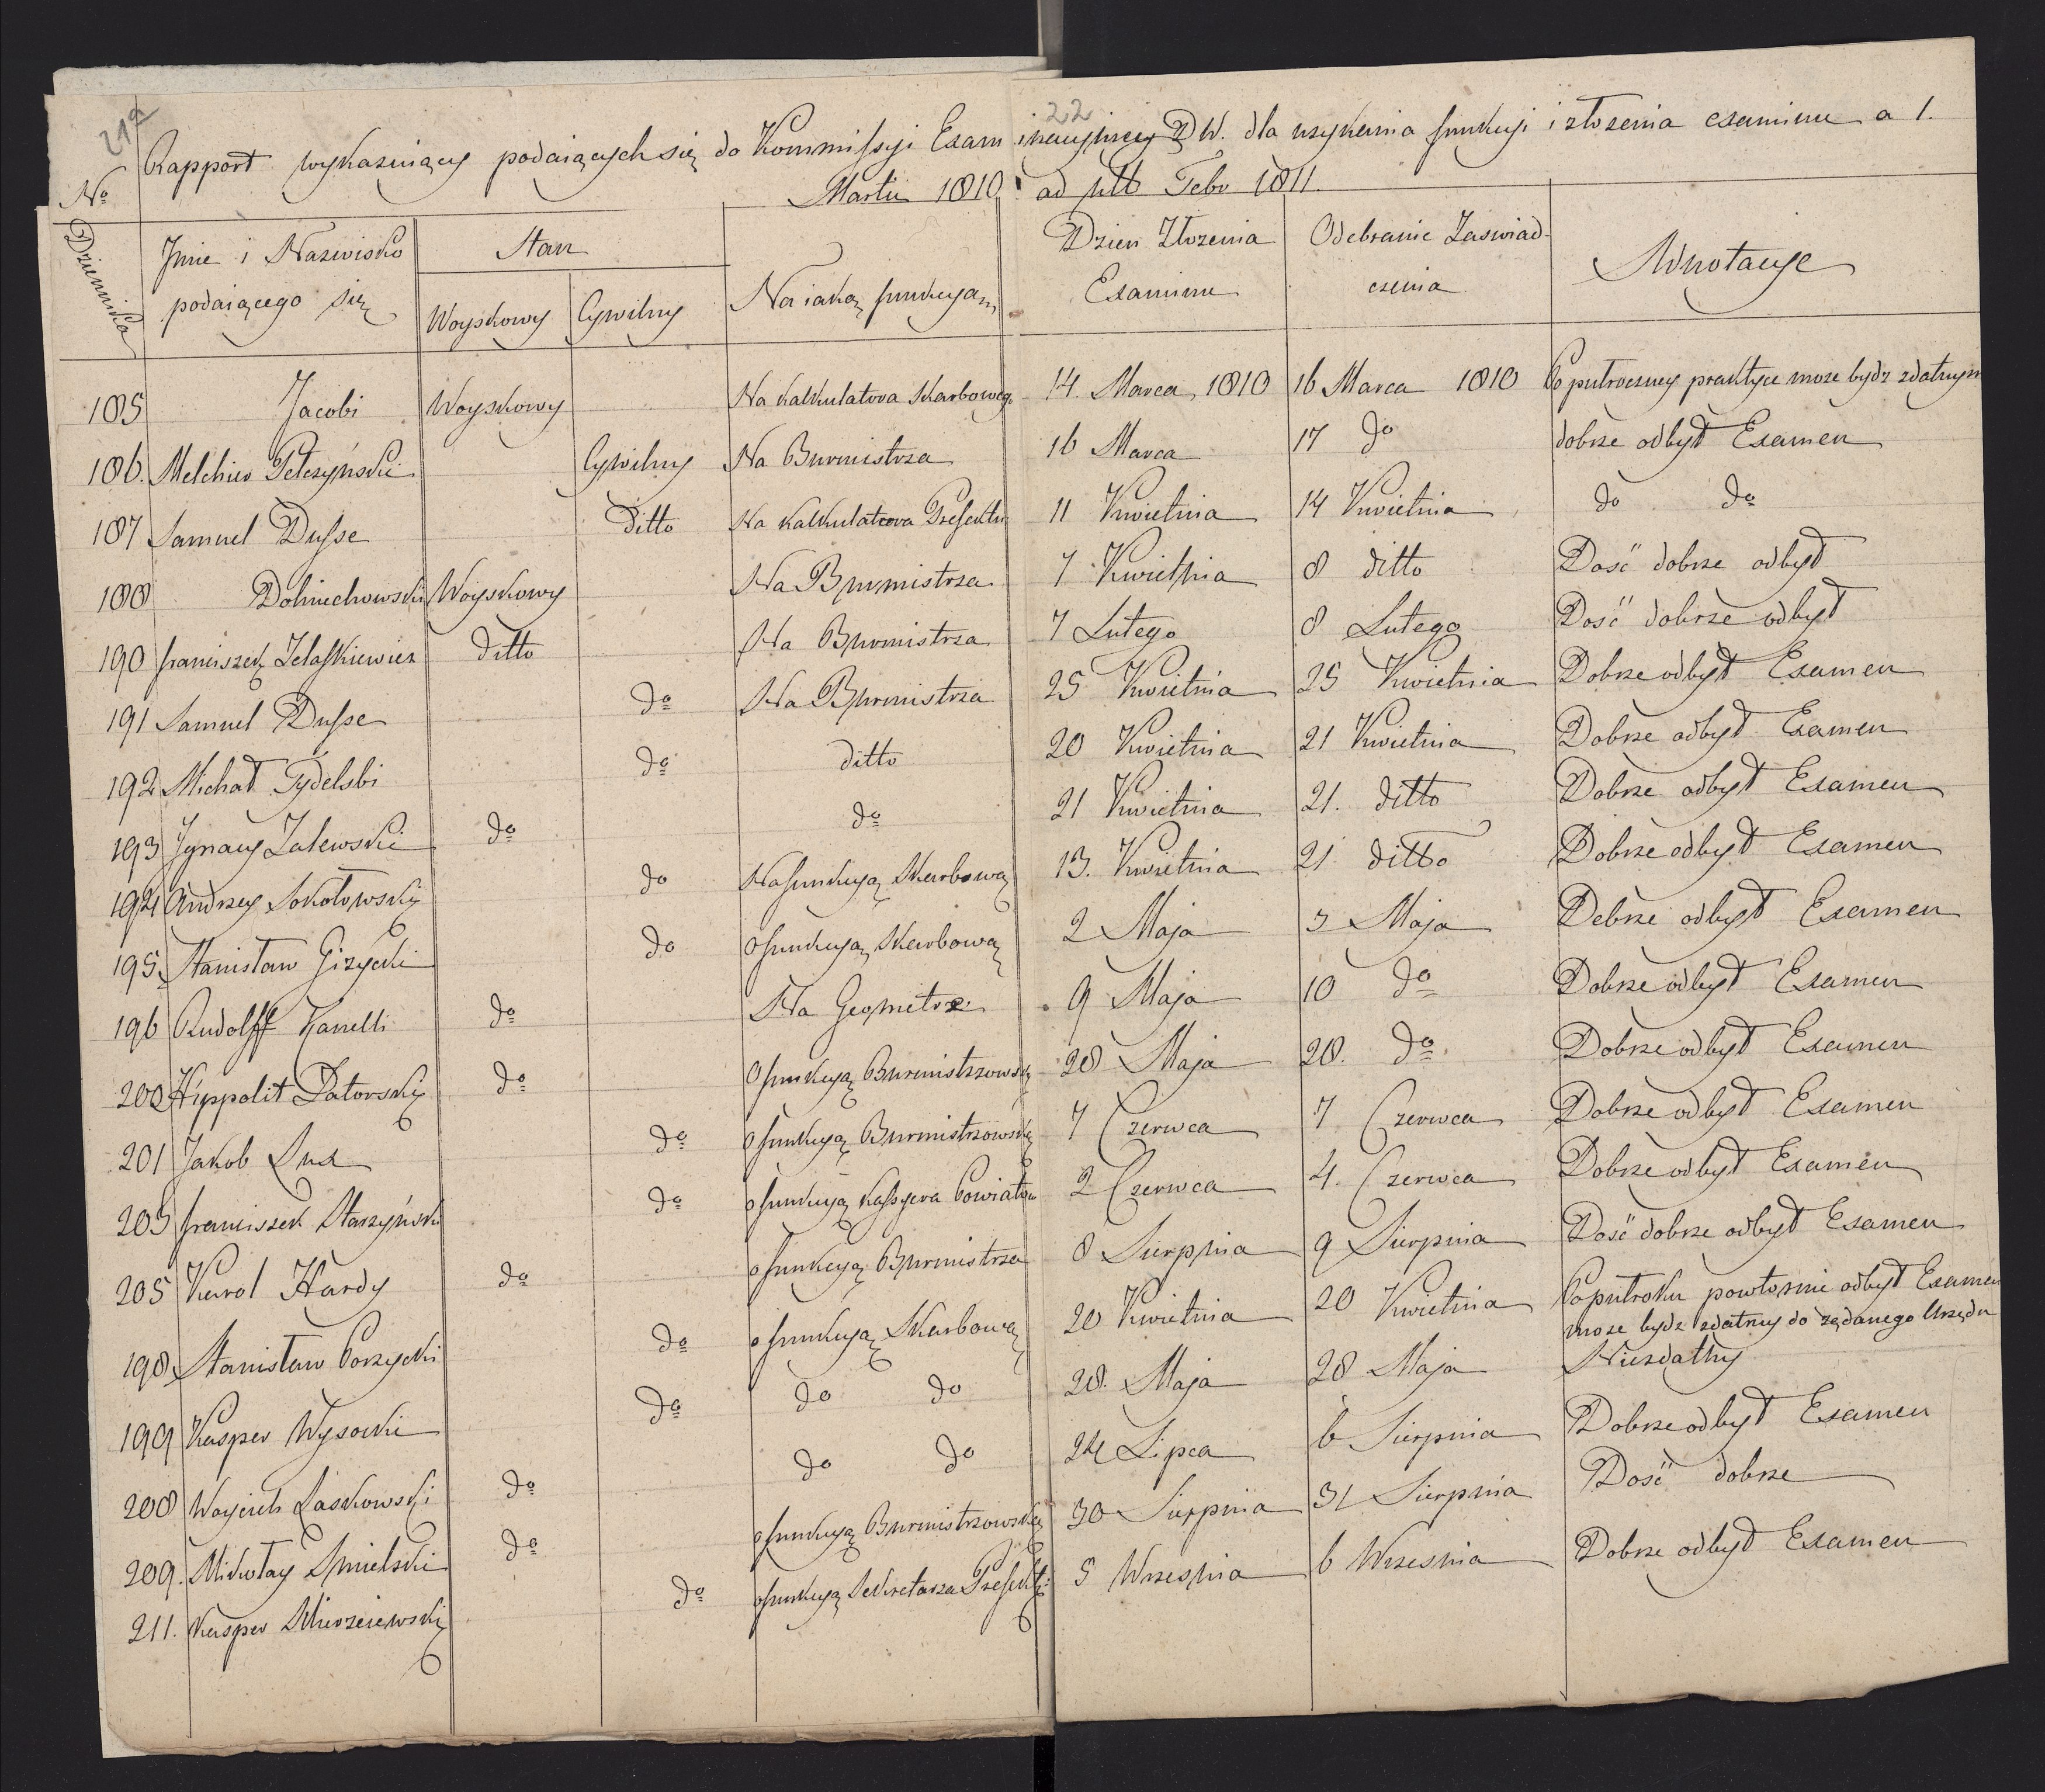 21a
22
Rapport wykazuiący podaiących się do Kommissyi Examinacyiney D W. dla uzyskania funkcyi i złożenia examinu a 1.
Martii 1810 ad ult Febr 1811.
No Dziennika | Jmie i Nazwisko podaiącego się | Stan | Na iaką funkcyą | Dzien Złozenia Examinu | Odebranie Zaswiadczenia | Adnotacye
Woyskowy | Cywilny
185 Jacobi Woyskowy Na Kalkulatora Skarboweg. 14. Marca 1810 16 Marca 1810 Po putroczney praktyce moze bydz zdatnym
186. Melchior Pełczyński Cywilny Na Burmistrza 16 Marca 17 do dobrze odbył Examen
187 Samuel Dusse Ditto Na Kalkulatora Prefektu 11 Kwietnia 14 Kwietnia do do
188 Dołniechowski Woyskowy Na Burmistrza 7 Kwietnia 8 ditto Dosć dobrze odbył
190 franciszek Zelaskiewicz Ditto Na Burmistrza 7 Lutego 8 Lutego Dosć dobrze odbył
191 Samuel Dusse do Na Burmistrza 25 Kwietnia 25 Kwietnia Dobrze odbył Examen
192 Michał Tydelski do ditto 20 Kwietnia 21 Kwietnia Dobrze odbył Examen
193 Jgnacy Zalewski do do 21 Kwietnia 21. ditto Dobrze odbył Examen
194 Andrzey Sokołowski do Na funkcyą Skarbową 13. Kwietnia 21 ditto Dobrze odbył Examen
195. Stanisław Gizycki do o funkcyą Skarbową 2 Maja 3 Maja Debrze odbył Examen
196 Rudolff Kanelli do Na Geometrę 9 Maja 10 do Dobrze odbył Examen
200 Hippolit Datorski do O funkcyą Burmistrzowską 28 Maja 28. do Dobrze odbył Examen
201 Jakob Lux do o funkcyą Burmistrzowską 7 Czerwca 7 Czerwca Dobrze odbył Examen
203 franciszek Starzyński do o funkcyą Kassyera Powiatow 2 Czerwca 4. Czerwca Dobrze odbył Examen
205 Karol Hardy do o funkcyą Burmistrza 8 Sierpnia 9 Sierpnia Dosć dobrze odbył Examen
198. Stanisław Porzycki do o funkcyą Skarbową 20 Kwietnia 20 Kwietnia Po putroku powtornie odbył Examen
moze bydz zdatny do ządanego Urzędu
199 Kasper Wysocki do do do 28. Maja 28 Maja Niezdatny
208 Woyciech Laskowski do do do 24 Lipca 6 Sierpnia Dobrze odbył Examen
209. Mikołay Smielski do o funkcyą Burmistrzowską 30 Sierpnia 31 Sierpnia Dosć dobrze
211. Kasper Skierzeiewski do o funkcyą Sekretarza Prefekt: 5 Wrzesnia 6 Wrzesnia Dobrze odbył Examen